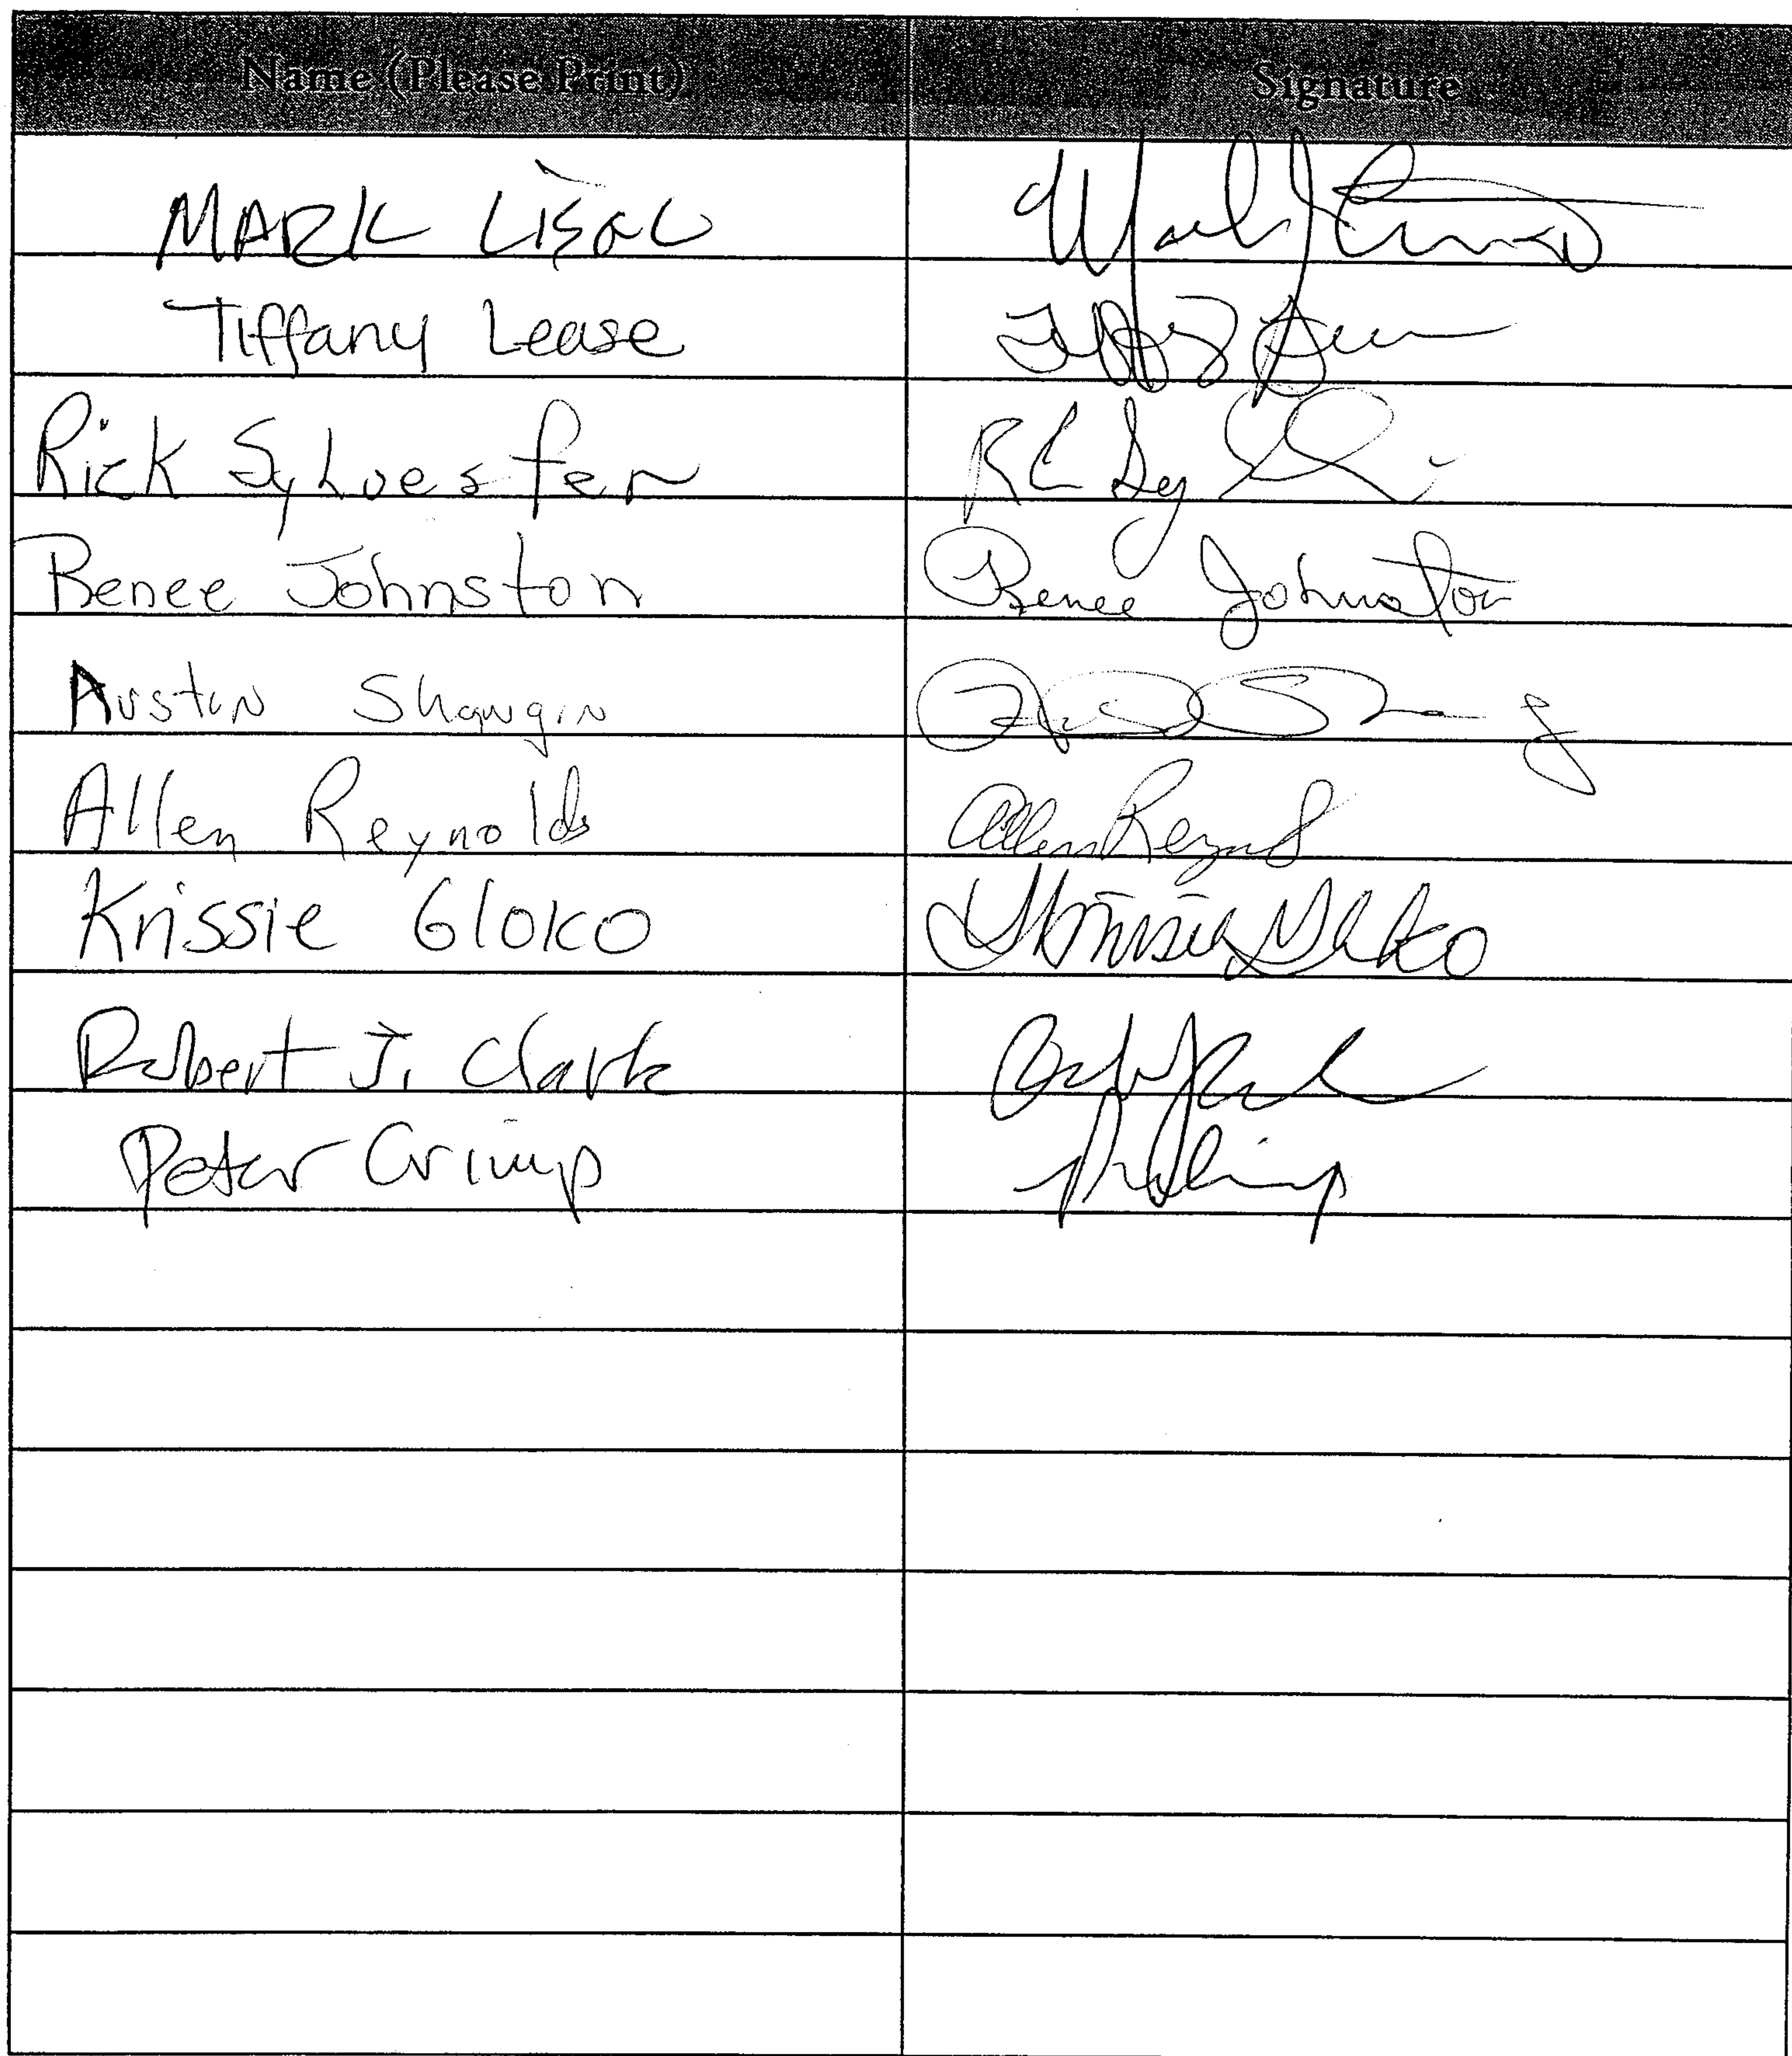 Name (Please Print) Signature
MARK
Tiffany Lease
Rick Sylvester
Renee Johnston Renee Johnston
Austin Shawgin
Allen Reynolds Allen Reynolds
Krissie Gloko Krissie Gloko
Robert J. Clark
Peter Crimp